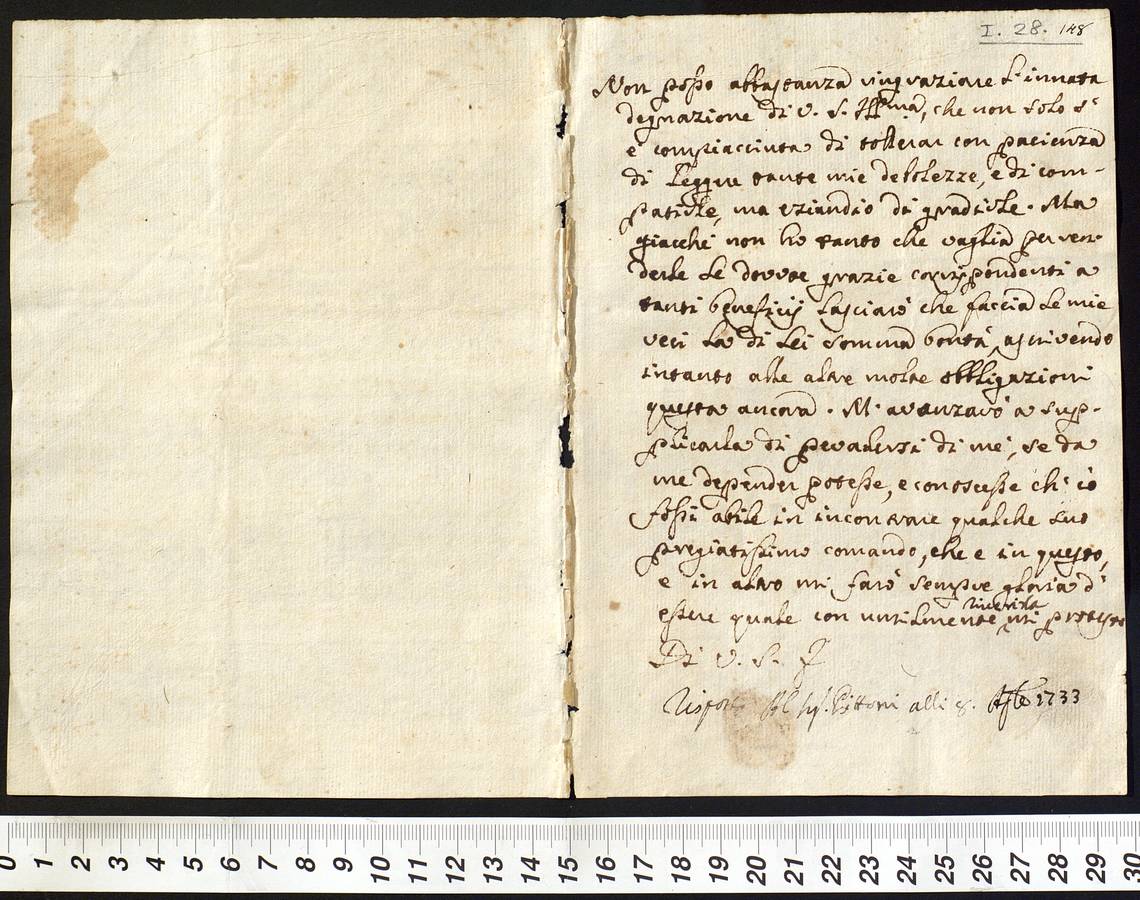 I. 28. 148
Non posso abbastanza ringraziare l'innata
degnazione di V. S. Illma, che non solo s'
è compiacciuta di tollerar con pacienza
di leggere tante mie debolezze, e di com-
patirle, ma eziandio di gradirle. Ma
giacchè non hò tanto che vaglia per ren-
derle le dovute grazie corrispondenti a
tanti beneficij lasciarò che faccia le mie
veci la di Lei somma bontà, ascrivendo
intanto alle altre molte obbligazioni
questa ancora. M'avanzarò a sup-
plicarla di prevalersi di me, se da
me depender potesse, e conoscesse ch'io
fossi abile in incontrare qualche suo
pregiatissimo comando, che e in questo,
e in altro mi farò sempre gloria d'
essere quale con umilmente riverirla mi protesto
Di V. S. I
Risposta al Sig. Pittoni alli 8. 1733
0 1 2 3 4 5 6 7 8 9 10 11 12 13 14 15 16 17 18 19 20 21 22 23 24 25 26 27 28 29 30